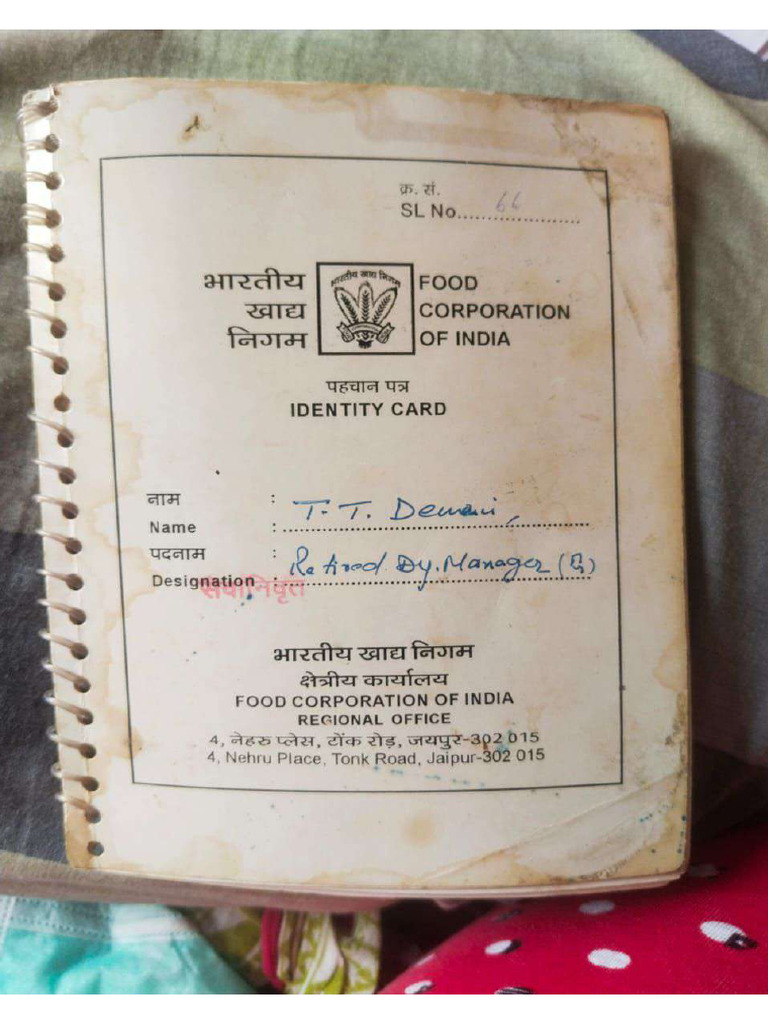 क्र. सं.
SL No. 66
भारतीय खाद्य निगम
भारतीय
खाद्य
निगम
FOOD
CORPORATION
OF INDIA
पहचान पत्र
IDENTITY CARD
नाम :
Name : T. T. Dewani
पदनाम :
Designation : Retired Dy. Manager
सेवानिवृत
भारतीय खाद्य निगम
क्षेत्रीय कार्यालय
FOOD CORPORATION OF INDIA
REGIONAL OFFICE
4, नेहरु प्लेस, टोंक रोड़, जयपुर-302 015
4, Nehru Place, Tonk Road, Jaipur-302 015